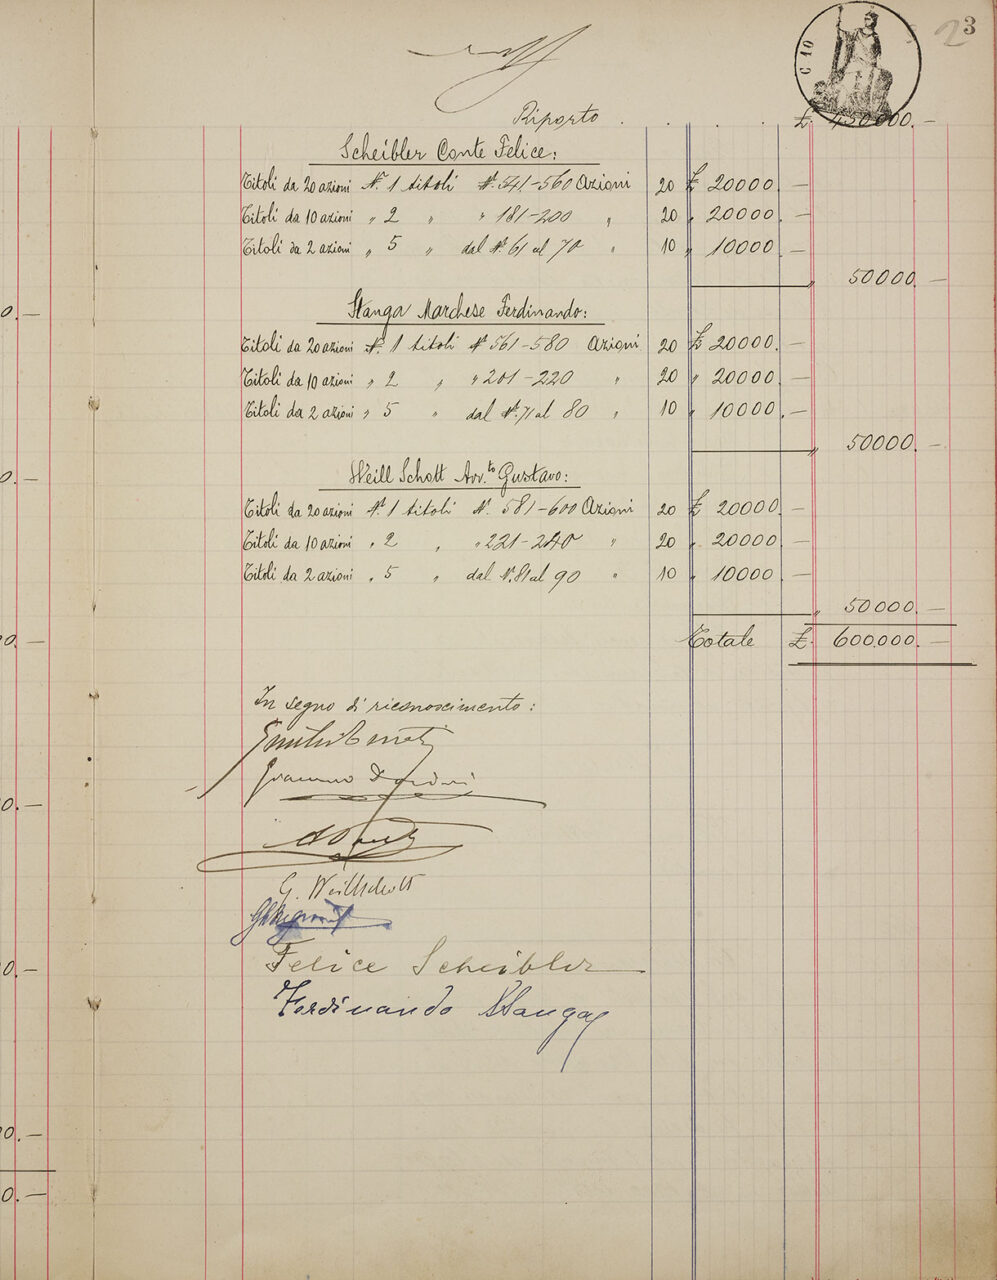 23
C 10
Riporto . . . . £ 450000. —
Scheibler Conte Felice:
Titoli da 20 azioni N. 1 titoli N. 541-560 Azioni 20 £ 20000. —
Titoli da 10 azioni „ 2 „ „ 181-200 „ 20 „ 20000. —
Titoli da 2 azioni „ 5 „ dal N. 61 al 70 „ 10 „ 10000. —
„ 50000. —
Stanga Marchese Ferdinando:
Titoli da 20 azioni N. 1 titoli N. 561-580 Azioni 20 £ 20000. —
Titoli da 10 azioni „ 2 „ „ 201-220 „ 20 „ 20000. —
Titoli da 2 azioni „ 5 „ dal N. 71 al 80 „ 10 „ 10000. —
„ 50000. —
Weill Schott Avv.to Gustavo:
Titoli da 20 azioni N. 1 titoli N. 581-600 Azioni 20 £ 20000. —
Titoli da 10 azioni „ 2 „ „ 221-240 „ 20 „ 20000. —
Titoli da 2 azioni „ 5 „ dal N. 81 al 90 „ 10 „ 10000. —
„ 50000. —
Totale £. 600.000. —
In segno di riconoscimento:
G. Weillschott
Felice Scheibler
Ferdinando Stanga